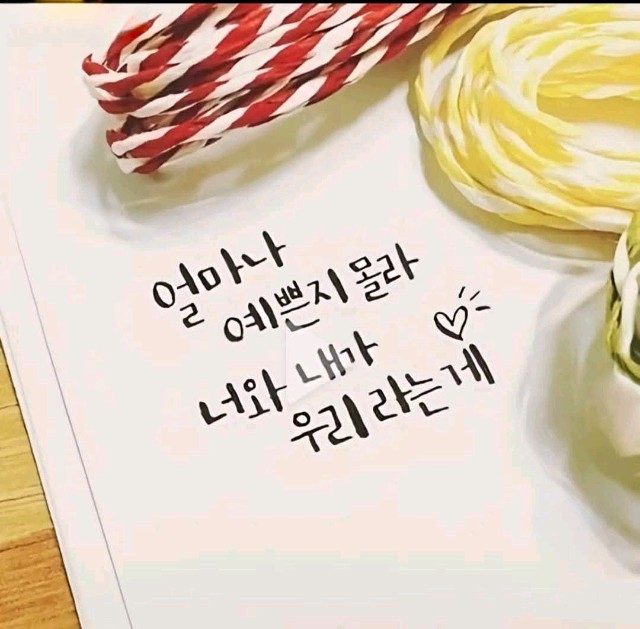 얼마나
예쁜지 몰라
너와 내가
우리 라는게